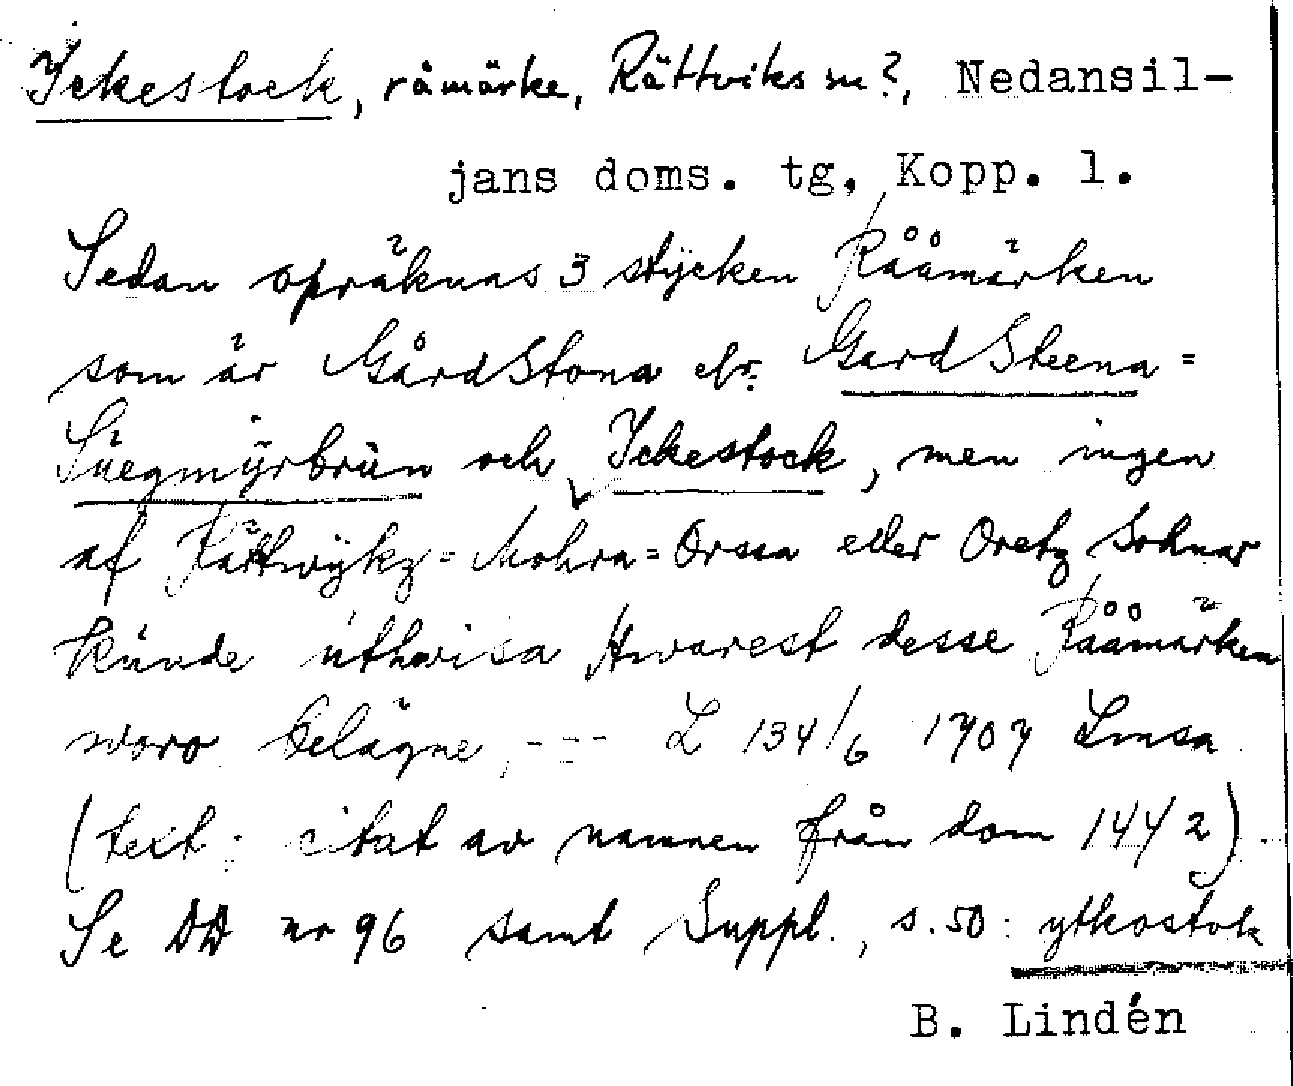 Ickestock, råmärke, Rättviks sn?, Nedansil-
jans doms. tg, Kopp. l.
Sedan opräknas 3 stÿcken Rååmärken
som är GårdStona elr. Gard Steena =
Süegmÿrbrün och Ickestock, men ingen
af Rättwÿkz = Mohra = Orssa eller Oretz Sochnar
kunde uthwisa Hwarest desse Rååmärken
woro belägne, --- L 134/6 1707 Lmsa
(text: citat av namnen från dom 1442)
Se DD nr 96 samt Suppl., s.50: ytkostok
B. Lindén